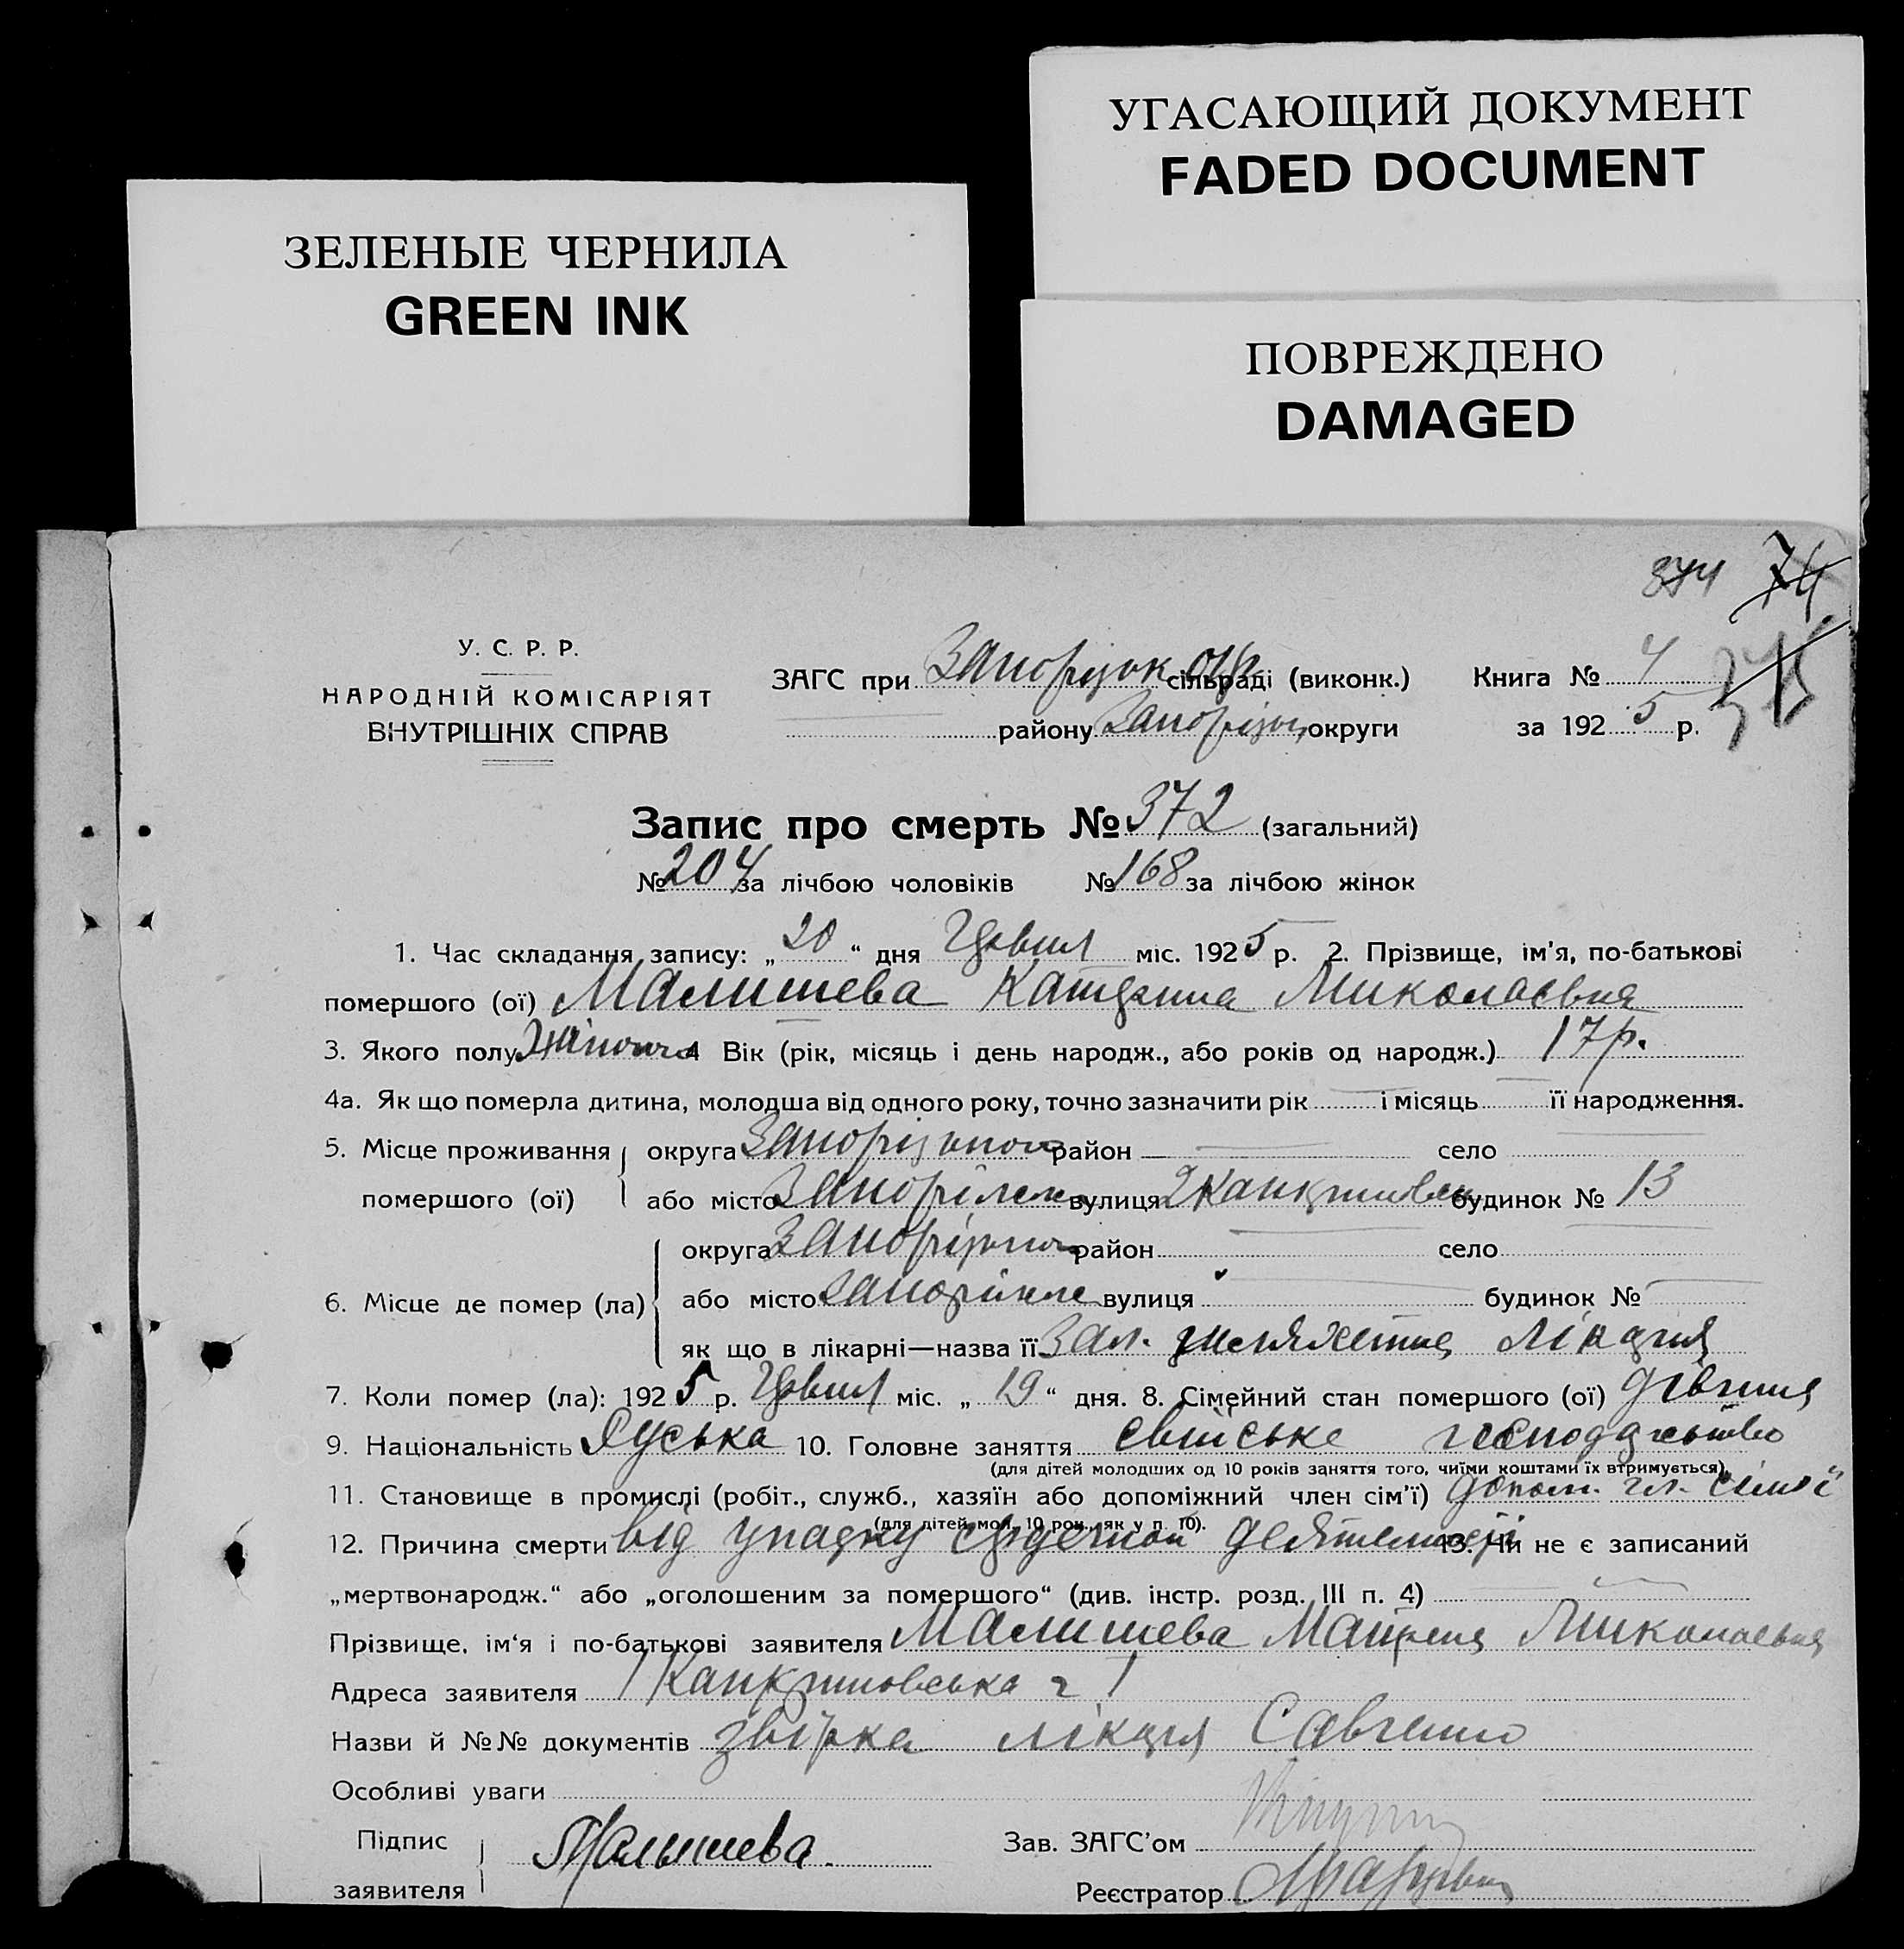 УГАСАЮЩИЙ ДОКУМЕНТ
FADED DOCUMENT
ЗЕЛЕНЫЕ ЧЕРНИЛА
GREEN INK
ПОВРЕЖДЕНО
DAMAGED
374 74
У. С. Р. Р.
НАРОДНІЙ КОМІСАРІЯТ
ВНУТРІШНІХ СПРАВ
ЗАГС при Запорізьк окр сільраді (виконк.) Книга № 4
району Запорізьк округи за 1925 р.
Запис про смерть № 372 (загальний)
№ 204 за лічбою чоловіків № 168 за лічбою жінок
1. Час складання запису: „20“ дня міс. 1925 р. 2. Прізвище, ім'я, по-батькові
помершого (ої) Малишева Катерина Миколаєвна
3. Якого полу Жіночого 4 Вік (рік, місяць і день народж., або років од народж.) 17 р.
4а. Як що померла дитина, молодша від одного року, точно зазначити рік і місяць її народження.
5. Місце проживання округа Запорізька район село
помершого (ої) або місто Запоріжжя вулиця будинок № 13
округа Запорізька район село
6. Місце де помер (ла) або місто Запоріжжя вулиця будинок №
як що в лікарні—назва її Зал. лікарня
7. Коли помер (ла): 1925 р. міс. „19“ дня. 8. Сімейний стан помершого (ої) дівчина
9. Національність Руська 10. Головне заняття свійське господарство
(для дітей молодших од 10 років заняття того, чиїми коштами їх втримується)
11. Становище в промислі (робіт., служб., хазяїн або допоміжний член сім'ї) допом. чл. сім'ї
(для дітей мол. 10 рок., як у п. 10).
12. Причина смерти від упадку сердечной деятельності 13. Чи не є записаний
„мертвонародж.“ або „оголошеним за помершого“ (див. інстр. розд. III п. 4)
Прізвище, ім'я і по-батькові заявителя Малишева Мотрена Миколаевна
Адреса заявителя
Назви й №№ документів лікаря Савченко
Особливі уваги
Підпис
заявителя Малышева.
Зав. ЗАГС'ом
Реєстратор